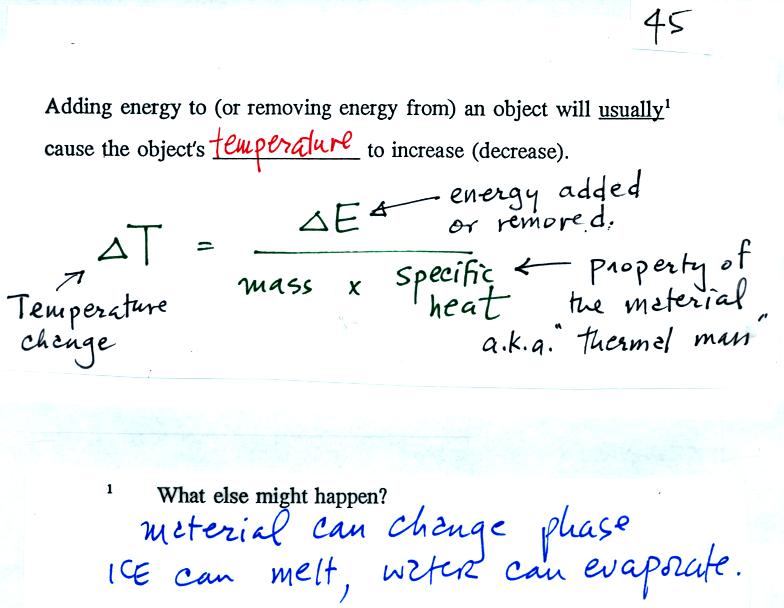 45
Adding energy to (or removing energy from) an object will usually¹
cause the object's temperature to increase (decrease).
ΔT = ΔE
mass x specific heat
energy added
or removed.
Temperature
change
property of
the material
a.k.a. "thermal mass"
¹ What else might happen?
material can change phase
ICE can melt, water can evaporate.